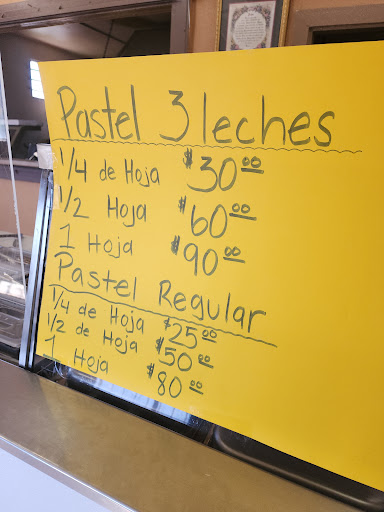 Pastel 3 leches
1/4 de Hoja $30.00
1/2 Hoja $60.00
1 Hoja $90.00
Pastel Regular
1/4 de Hoja $25.00
1/2 de Hoja $50.00
1 Hoja $80.00